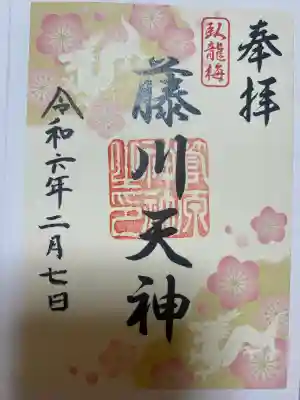 奉拝
臥龍梅
藤川天神
令和六年二月七日